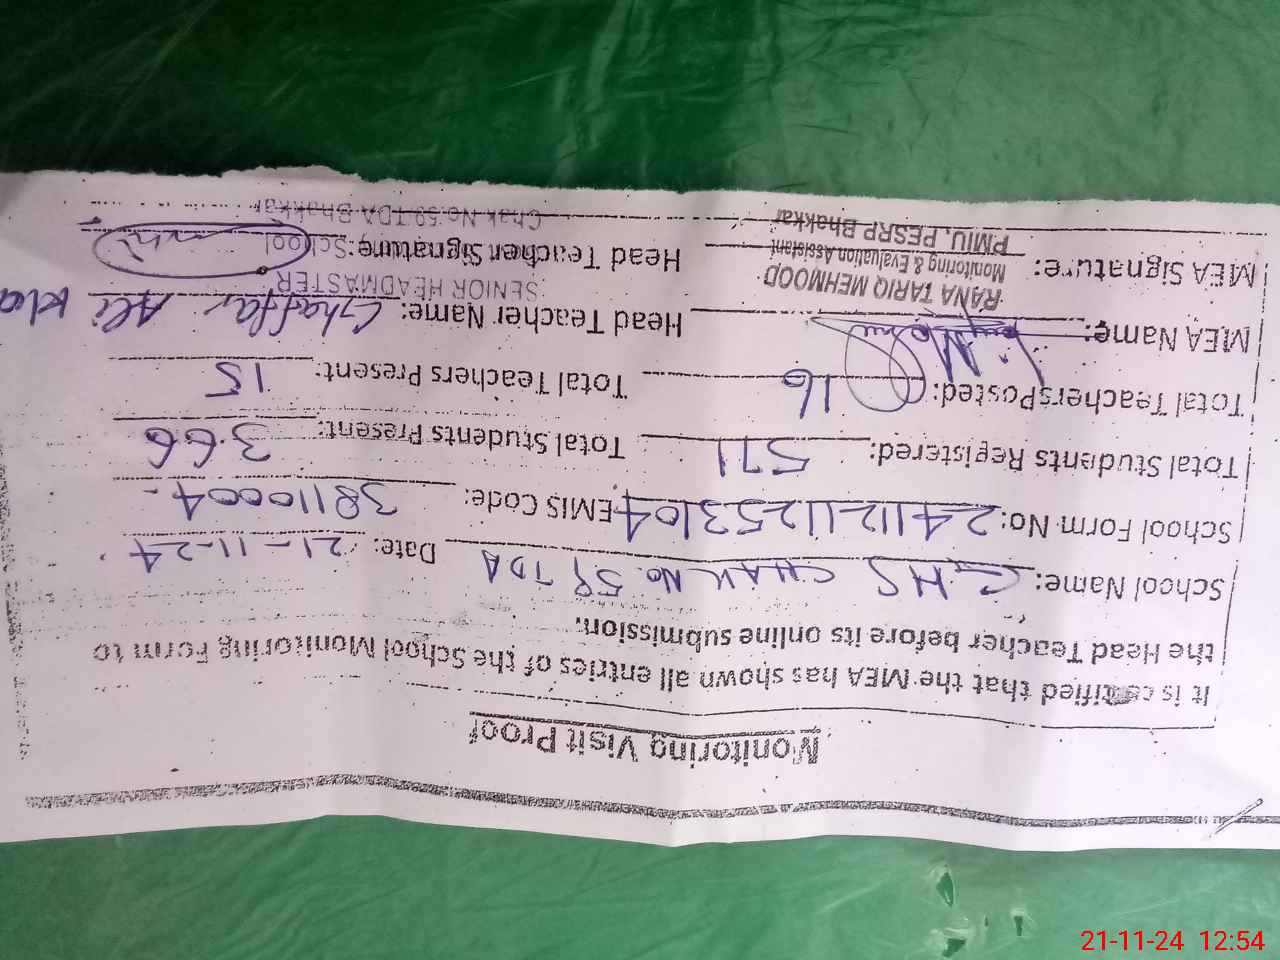 Monitoring Visit Proof
It is certified that the MEA has shown all entries of the School Monitoring Form to
the Head Teacher before its online submission.
School Name: GHS CHAK No. 59 TDA Date: 21-11-24
School Form No: 2411211253104 EMIS Code: 38110004
Total Students Registered: 571 Total Students Present: 366
Total TeachersPosted: 16 Total Teachers Present: 15
MEA Name: Head Teacher Name: Ghaffar Ali Kha
RANA TARIQ MEHMOOD SENIOR HEADMASTER
Monitoring & Evaluation Assistant
MEA Signature: Head Teacher Signature: School
PMIU, PESRP Bhakkar Chak No.59 TDA Bhakkar
21-11-24 12:54